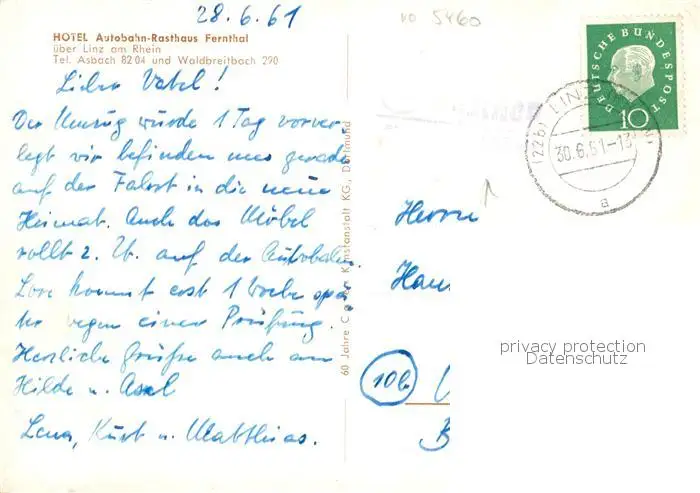 28.6.61
VD 5460
HOTEL Autobahn-Rasthaus Fernthal
über Linz am Rhein
Tel. Asbach 82 04 und Waldbreitbach 290
Lieber Vater!
Der Umzug wurde 1 Tag vorver
legt wir befinden uns gerade
auf der Fahrt in die neue
Heimat. Auch das Möbel
rollt z. Zt. auf der Autobahn.
Lore kommt erst 1 Woche spä
ter wegen einer Prüfung.
Herzliche Grüße auch an
Hilde u. Axel
Lena, Kurt u. Matthias.
60 Jahre Kunstanstalt KG., Dortmund
DEUTSCHE BUNDESPOST
10
(22b) LINZ
30.6.61-13
a
Herrn
Hans
10b
privacy protection
Datenschutz